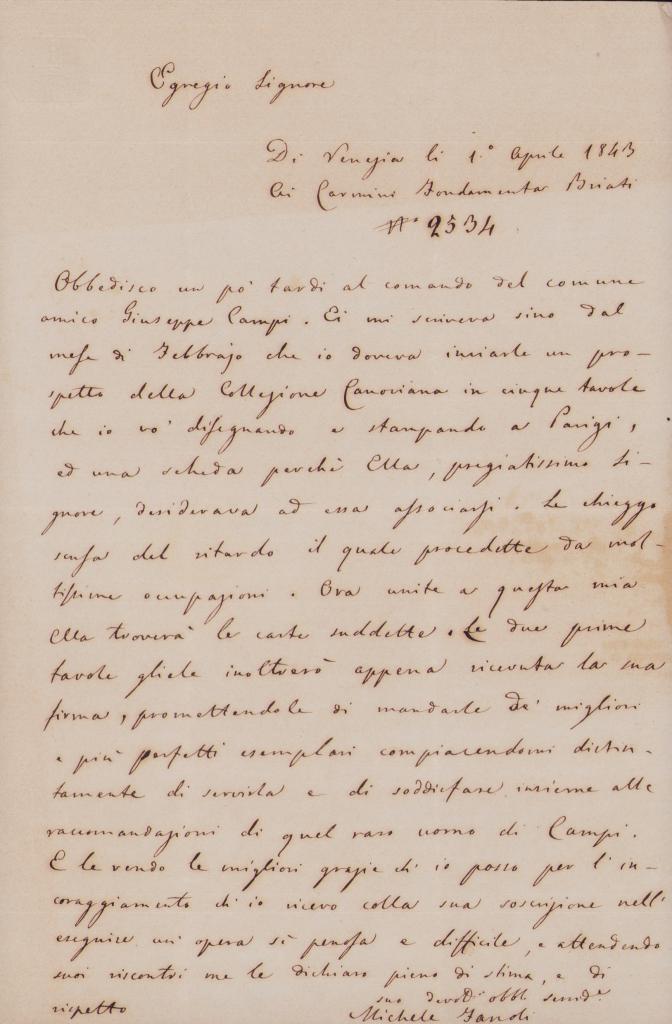 Egregio Signore
Di Venezia li 1.° Aprile 1843
Ai Carmini Fondamenta Briati
N° 2534
Obbedisco un po' tardi al comando del comune
amico Giuseppe Campi. Ei mi scriveva sino dal
mese di Febbrajo che io doveva inviarle un pro-
spetto della Collezione Canoviana in cinque tavole
che io vo' disegnando e stampando a Parigi,
ed una scheda perchè Ella, pregiatissimo Si-
gnore, desiderava ad essa associarsi. Le chieggo
scusa del ritardo il quale procedette da mol-
tissime occupazioni. Ora unite a questa mia
Ella troverà le carte suddette. Le due prime
tavole gliele inoltrerò appena ricevuta la sua
firma, promettendole di mandarle de' migliori
e più perfetti esemplari compiacendomi distin-
tamente di servirla e di soddisfare insieme alle
raccomandazioni di quel raro uomo di Campi.
E le rendo le migliori grazie ch' io posso per l' in-
coraggiamento ch' io ricevo colla sua soscrizione nell'
eseguire un' opera sì penosa e difficile, e attendendo
suoi riscontri me le dichiaro pieno di stima, e di
rispetto
suo devot° obbl servid.e
Michele Fanoli